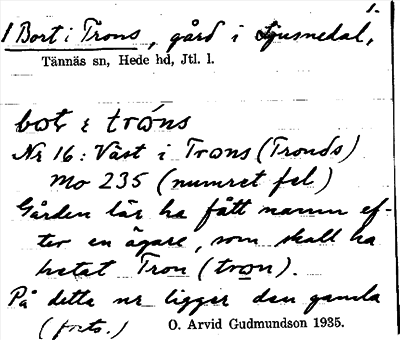 1.
1 Bort i Trons, gård i Ljusnedal,
Tännäs sn, Hede hd, Jtl. l.
bot i tróns
Nr 16: Väst i Trons (Tronds)
Mo 235 (numret fel)
Gården lär ha fått namn ef-
ter en ägare, som skall ha
hetat Tron (tron).
På detta nr ligger den gamla
(forts.) O. Arvid Gudmundson 1935.